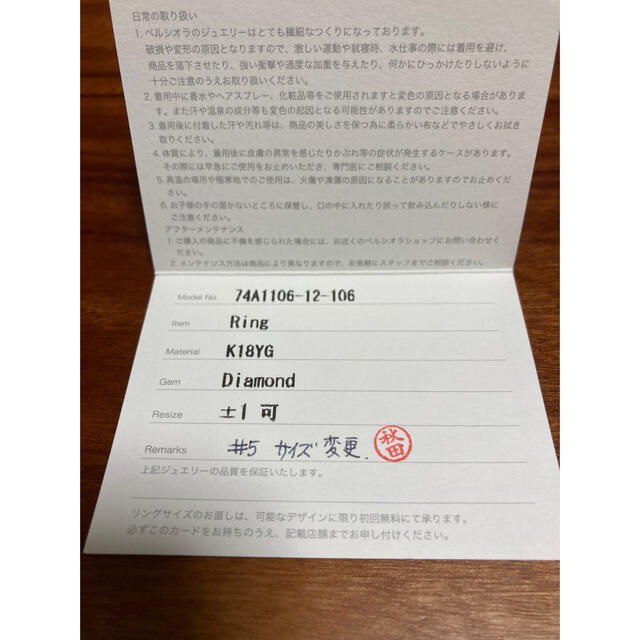 日常の取り扱い
1. ベルシオラのジュエリーはとても繊細なつくりになっております。
破損や変形の原因となりますので、激しい運動や就寝時、水仕事の際には着用を避け、
商品を落下させたり、強い衝撃や過度な加重を与えたり、何かにひっかけたりしないように
十分ご注意のうえお取り扱いください。
2. 着用中に香水やヘアスプレー、化粧品等をご使用されますと変色の原因となる場合がありま
す。また汗や温泉の成分等も変色の起因となる可能性がありますのでご注意ください。
3. 着用後に付着した汗や汚れ等は、商品の美しさを保つ為に柔らかい布などでやさしくお拭き
取りください。
4. 体質により、着用後に皮膚の異常を感じたりかぶれ等の症状が発生するケースがあります。
その際には早急にご使用をお止めいただき、専門医にご相談ください。
5. 高温の場所や極寒地でのご使用は、火傷や凍傷の原因になることがありますのでお止めくだ
さい。
6. お子様の手の届かないところに保管し、口の中に入れたり誤って飲み込んだりしない様に
ご注意ください。
アフターメンテナンス
1. ご購入の商品に不備を感じられた場合には、お近くのベルシオラショップにお問い合わせく
ださい。
2. メンテナンス方法は商品により異なりますので、お気軽にスタッフまでご相談ください。
Model No. 74A1106-12-106
Item Ring
Material K18YG
Gem Diamond
Resize ±1 可
Remarks #5 サイズ変更. 秋田
上記ジュエリーの品質を保証いたします。
リングサイズのお直しは、可能なデザインに限り初回無料にて承ります。
必ずこのカードをお持ちのうえ、記載店舗までお申し付けください。